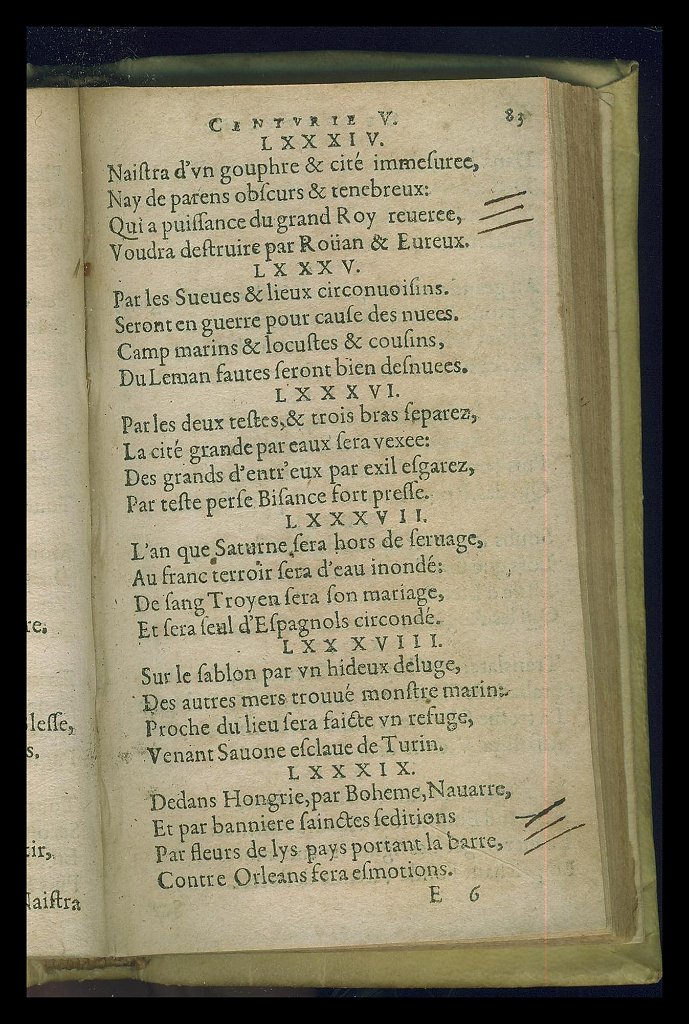 CENTVRIE V. 83
LXXXIV.
Naiſtra d'vn gouphre & cité immeſuree,
Nay de parens obſcurs & tenebreux:
Qui a puiſſance du grand Roy reueree,
Voudra deſtruire par Roüan & Eureux.
LXXXV.
Par les Sueues & lieux circonuoiſins.
Seront en guerre pour cauſe des nuees.
Camp marins & locuſtes & couſins,
Du Leman fautes ſeront bien deſnuees.
LXXXVI.
Par les deux teſtes, & trois bras ſeparez,
La cité grande par eaux ſera vexee:
Des grands d'entr'eux par exil eſgarez,
Par teſte perſe Biſance fort preſſe.
LXXXVII.
L'an que Saturne ſera hors de ſeruage,
Au franc terroir ſera d'eau inondé:
De ſang Troyen ſera ſon mariage,
Et ſera ſeul d'Eſpagnols circondé.
LXXXVIII.
Sur le ſablon par vn hideux deluge,
Des autres mers trouué monſtre marin:
Proche du lieu ſera faicte vn refuge,
Venant Sauone eſclaue de Turin.
LXXXIX.
Dedans Hongrie, par Boheme, Nauarre,
Et par banniere ſainctes ſeditions
Par fleurs de lys pays portant la barre,
Contre Orleans fera eſmotions.
E 6
re.
bleſſe,
s.
tir,
Naiſtra